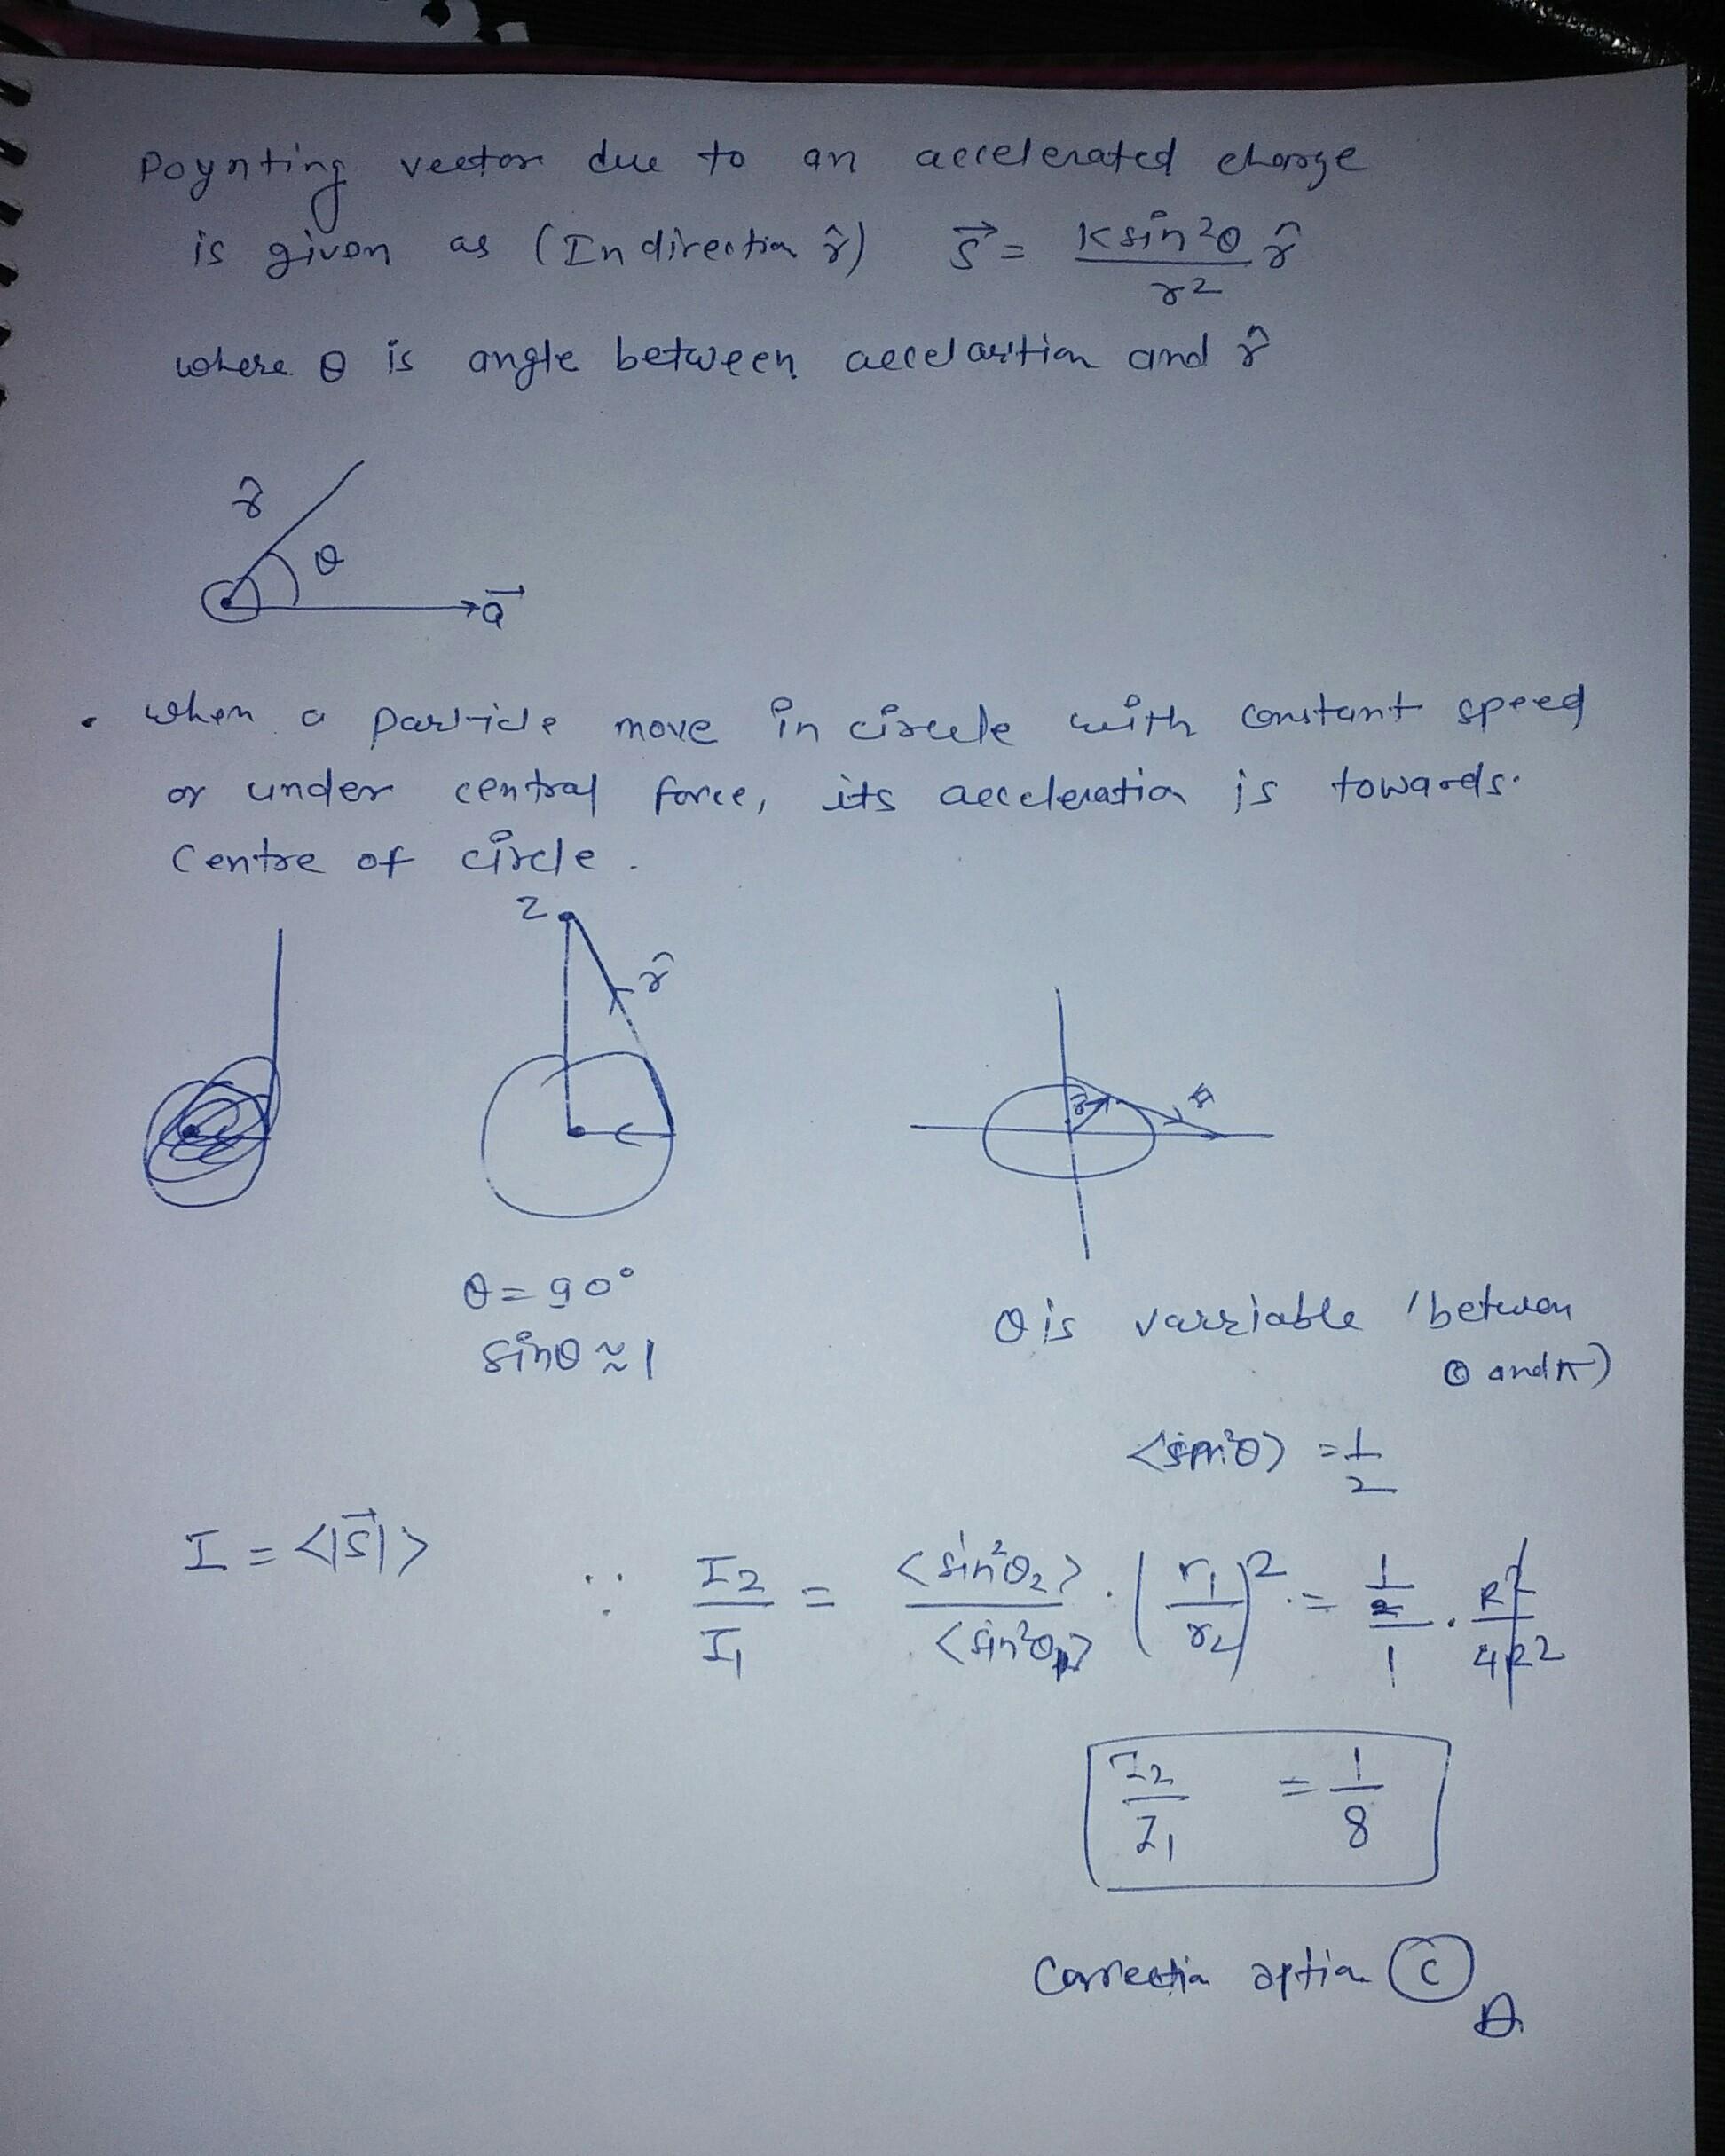 Poynting vector due to an accelerated charge
is given as (In direction r̂) S⃗ = K sin²θ / r² r̂
where θ is angle between accelaration and r̂
r̂
θ
a⃗
• when a particle move in circle with constant speed
or under central force, its acceleration is towards
Centre of circle.
Z
r̂
θ = 90°
sinθ ≈ 1
θ is varriable (between
0 and π)
<sin²θ> = 1/2
I = <|S⃗|> ∵ I2/I1 = <sin²θ2>/<sin²θ1> · (r1/r2)² = (1/2)/1 · R²/4R²
I2/I1 = 1/8
Correction option (C)